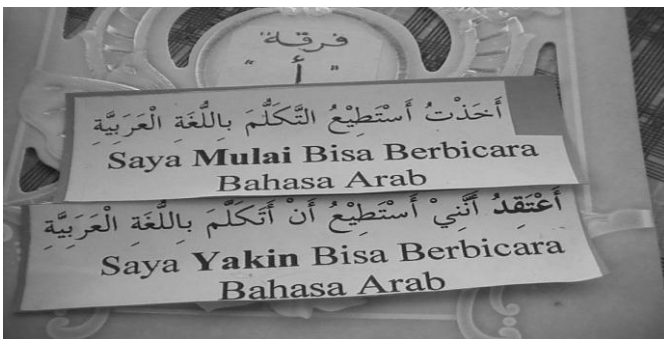 فرقة
" أ "
أَخَذْتُ أَسْتَطِيْعُ التَّكَلُّمَ بِاللُّغَةِ الْعَرَبِيَّةِ
Saya Mulai Bisa Berbicara
Bahasa Arab
أَعْتَقِدُ أَنَّنِيْ أَسْتَطِيْعُ أَنْ أَتَكَلَّمَ بِاللُّغَةِ الْعَرَبِيَّةِ
Saya Yakin Bisa Berbicara
Bahasa Arab